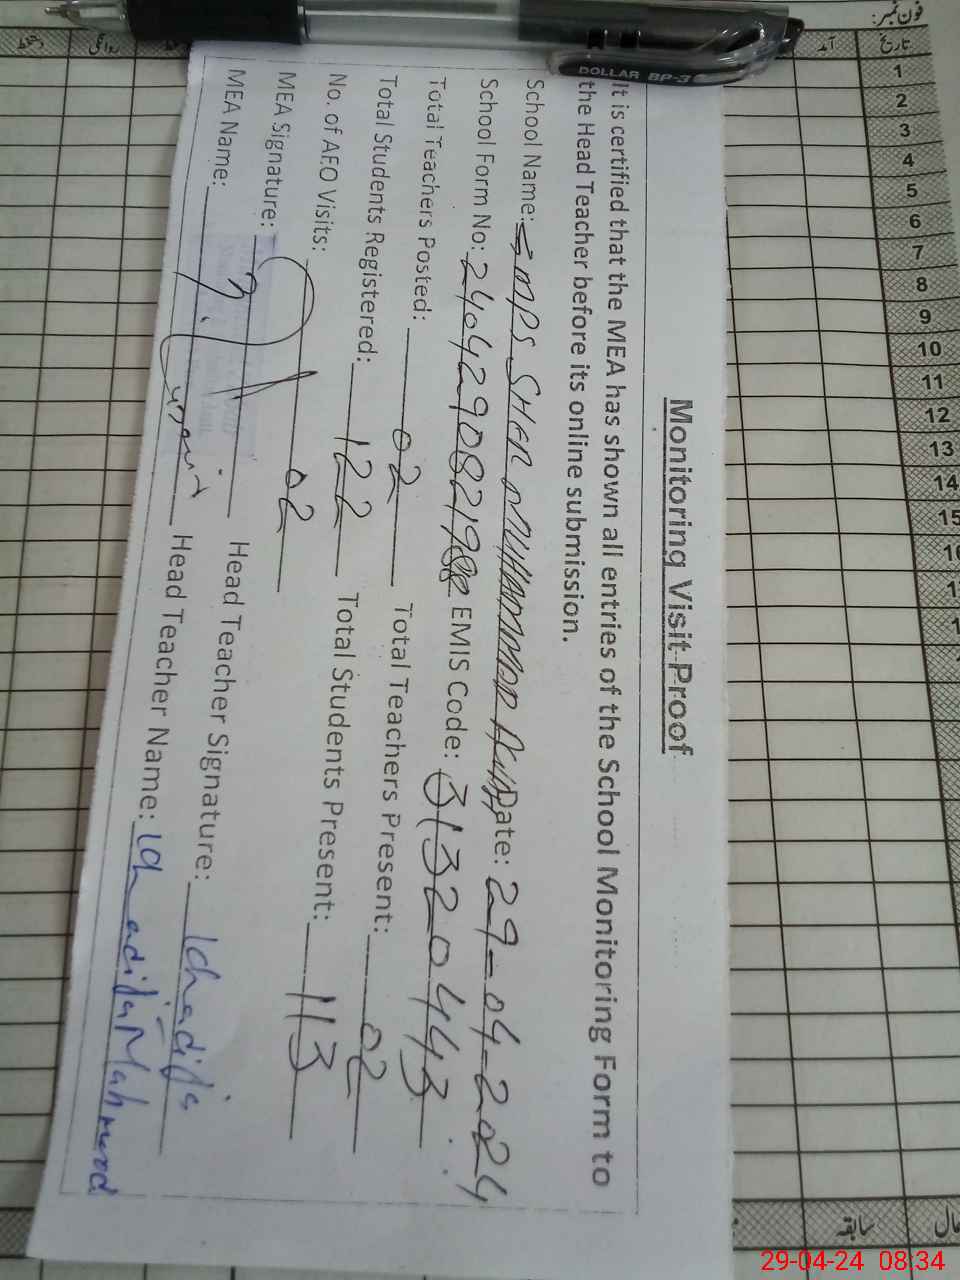 Monitoring Visit Proof
It is certified that the MEA has shown all entries of the School Monitoring Form to
the Head Teacher before its online submission.
School Name: GMPS SHER MUHAMMAD Date: 29-04-2024
School Form No: EMIS Code: 31320443
Total Teachers Posted: 02 Total Teachers Present: 02
Total Students Registered: 122 Total Students Present: 113
No. of AEO Visits: 02
MEA Signature: Head Teacher Signature: Khadija
MEA Name: Head Teacher Name: Khadija Mahmood
DOLLAR BP-3
فون نمبر:
تاریخ آمد روانگی
1
2
3
4
5
6
7
8
9
10
11
12
13
14
15
سابقہ
29-04-24 08:34